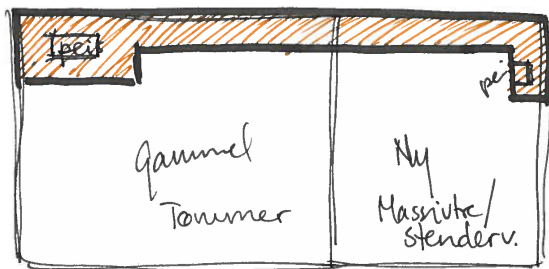 peis
pei
gammel
Tømmer
Ny
Massivtre/
stenderv.